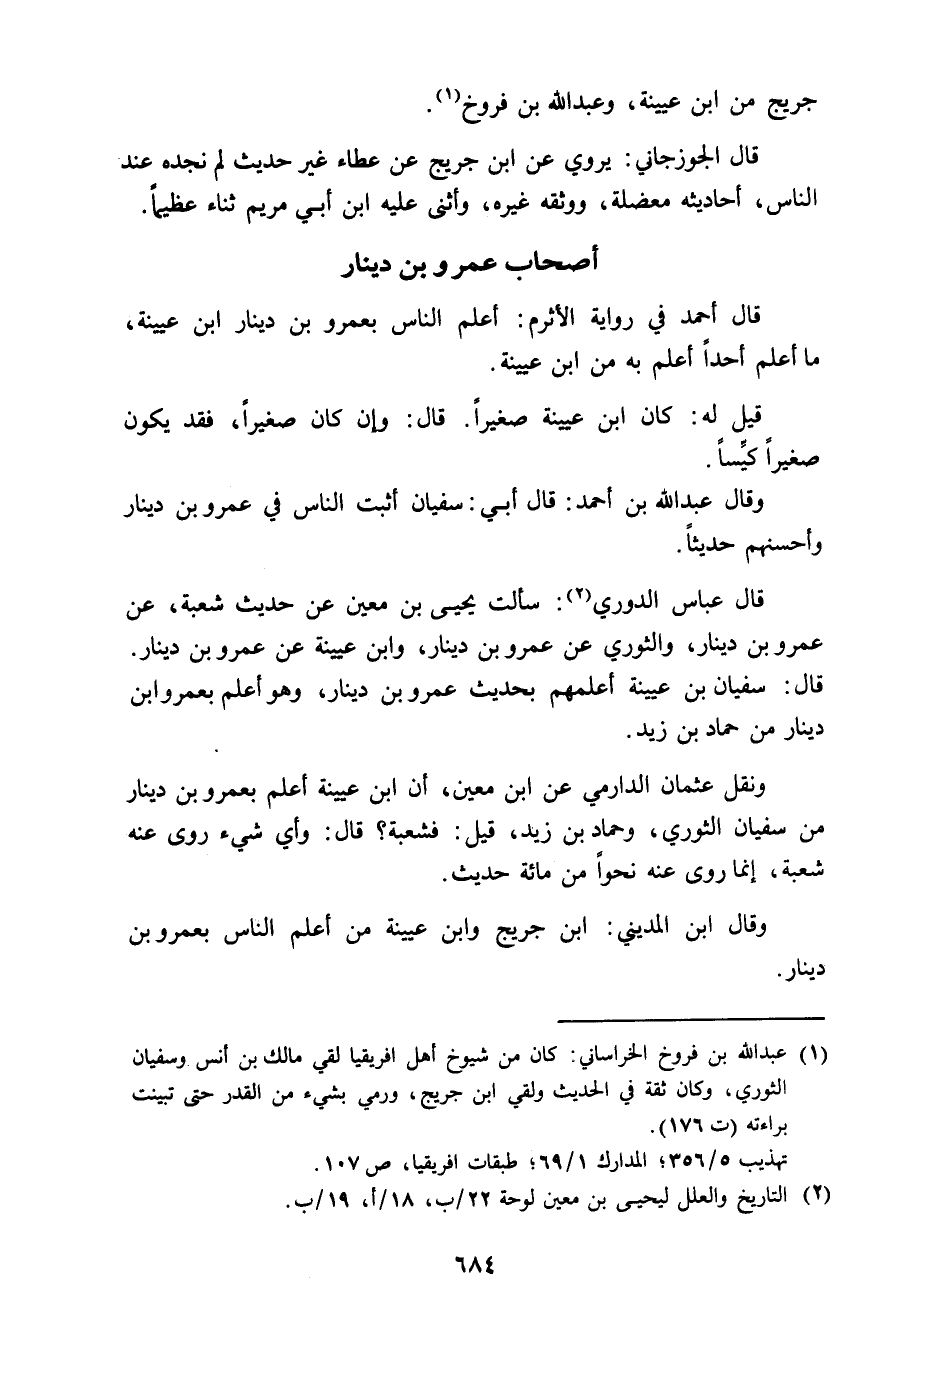 جريج من ابن عيينة، وعبدالله بن فروخ(١).
قال الجوزجاني: يروي عن ابن جريج عن عطاء غير حديث لم نجده عند
الناس، أحاديثه معضلة، ووثقه غيره، وأثنى عليه ابن أبي مريم ثناء عظيماً.
أصحاب عمرو بن دينار
قال أحمد في رواية الأثرم: أعلم الناس بعمرو بن دينار ابن عيينة،
ما أعلم أحداً أعلم به من ابن عيينة.
قيل له: كان ابن عيينة صغيراً. قال: وإن كان صغيراً، فقد يكون
صغيراً كيِّساً.
وقال عبدالله بن أحمد: قال أبي: سفيان أثبت الناس في عمرو بن دينار
وأحسنهم حديثاً.
قال عباس الدوري(٢): سألت يحيى بن معين عن حديث شعبة، عن
عمرو بن دينار، والثوري عن عمرو بن دينار، وابن عيينة عن عمرو بن دينار.
قال: سفيان بن عيينة أعلمهم بحديث عمرو بن دينار، وهو أعلم بعمرو ابن
دينار من حماد بن زيد.
ونقل عثمان الدارمي عن ابن معين، أن ابن عيينة أعلم بعمرو بن دينار
من سفيان الثوري، وحماد بن زيد، قيل: فشعبة؟ قال: وأي شيء روى عنه
شعبة، إنما روى عنه نحواً من مائة حديث.
وقال ابن المديني: ابن جريج وابن عيينة من أعلم الناس بعمرو بن
دينار.
(١) عبدالله بن فروخ الخراساني: كان من شيوخ أهل افريقيا لقي مالك بن أنس وسفيان
الثوري، وكان ثقة في الحديث ولقي ابن جريج، ورمي بشيء من القدر حتى تبينت
براءته (ت ١٧٦).
تهذيب ٣٥٦/٥؛ المدارك ٦٩/١؛ طبقات افريقيا، ص ١٠٧.
(٢) التاريخ والعلل ليحيى بن معين لوحة ٢٢/ب، ١٨/أ، ١٩/ب.
٦٨٤